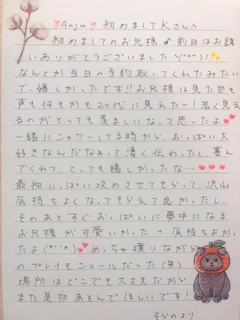 ♥Anju♥初めましてKさんへ
初めましてのお兄様♪前日はお誘
いありがとうございました
なんとか当日の予約取ってくれたみたい
で、嬉しかったです!!お兄様は見た目も
声も何もかも20代に見えたー!若く見え
るのがとっても羨ましいなって思ったよ
一緒にシャワーしてる時から、おっぱい大
好きなんだなぁって凄く伝わったし、喜ん
でくれて、とっても嬉しかったな…
最初いっぱい攻めさせてもらって、沢山
気持ちよくなってもらえて良かったし、
そのあとすぐおっぱいに夢中になる
お兄様が可愛いかったー気持ちよか
ったよ(*˘˘*)めっちゃ喋りながら
のプレイもシュールだった(笑)
場所はどこでも大丈夫だから
また是非あそんでほしいです!
そらのより